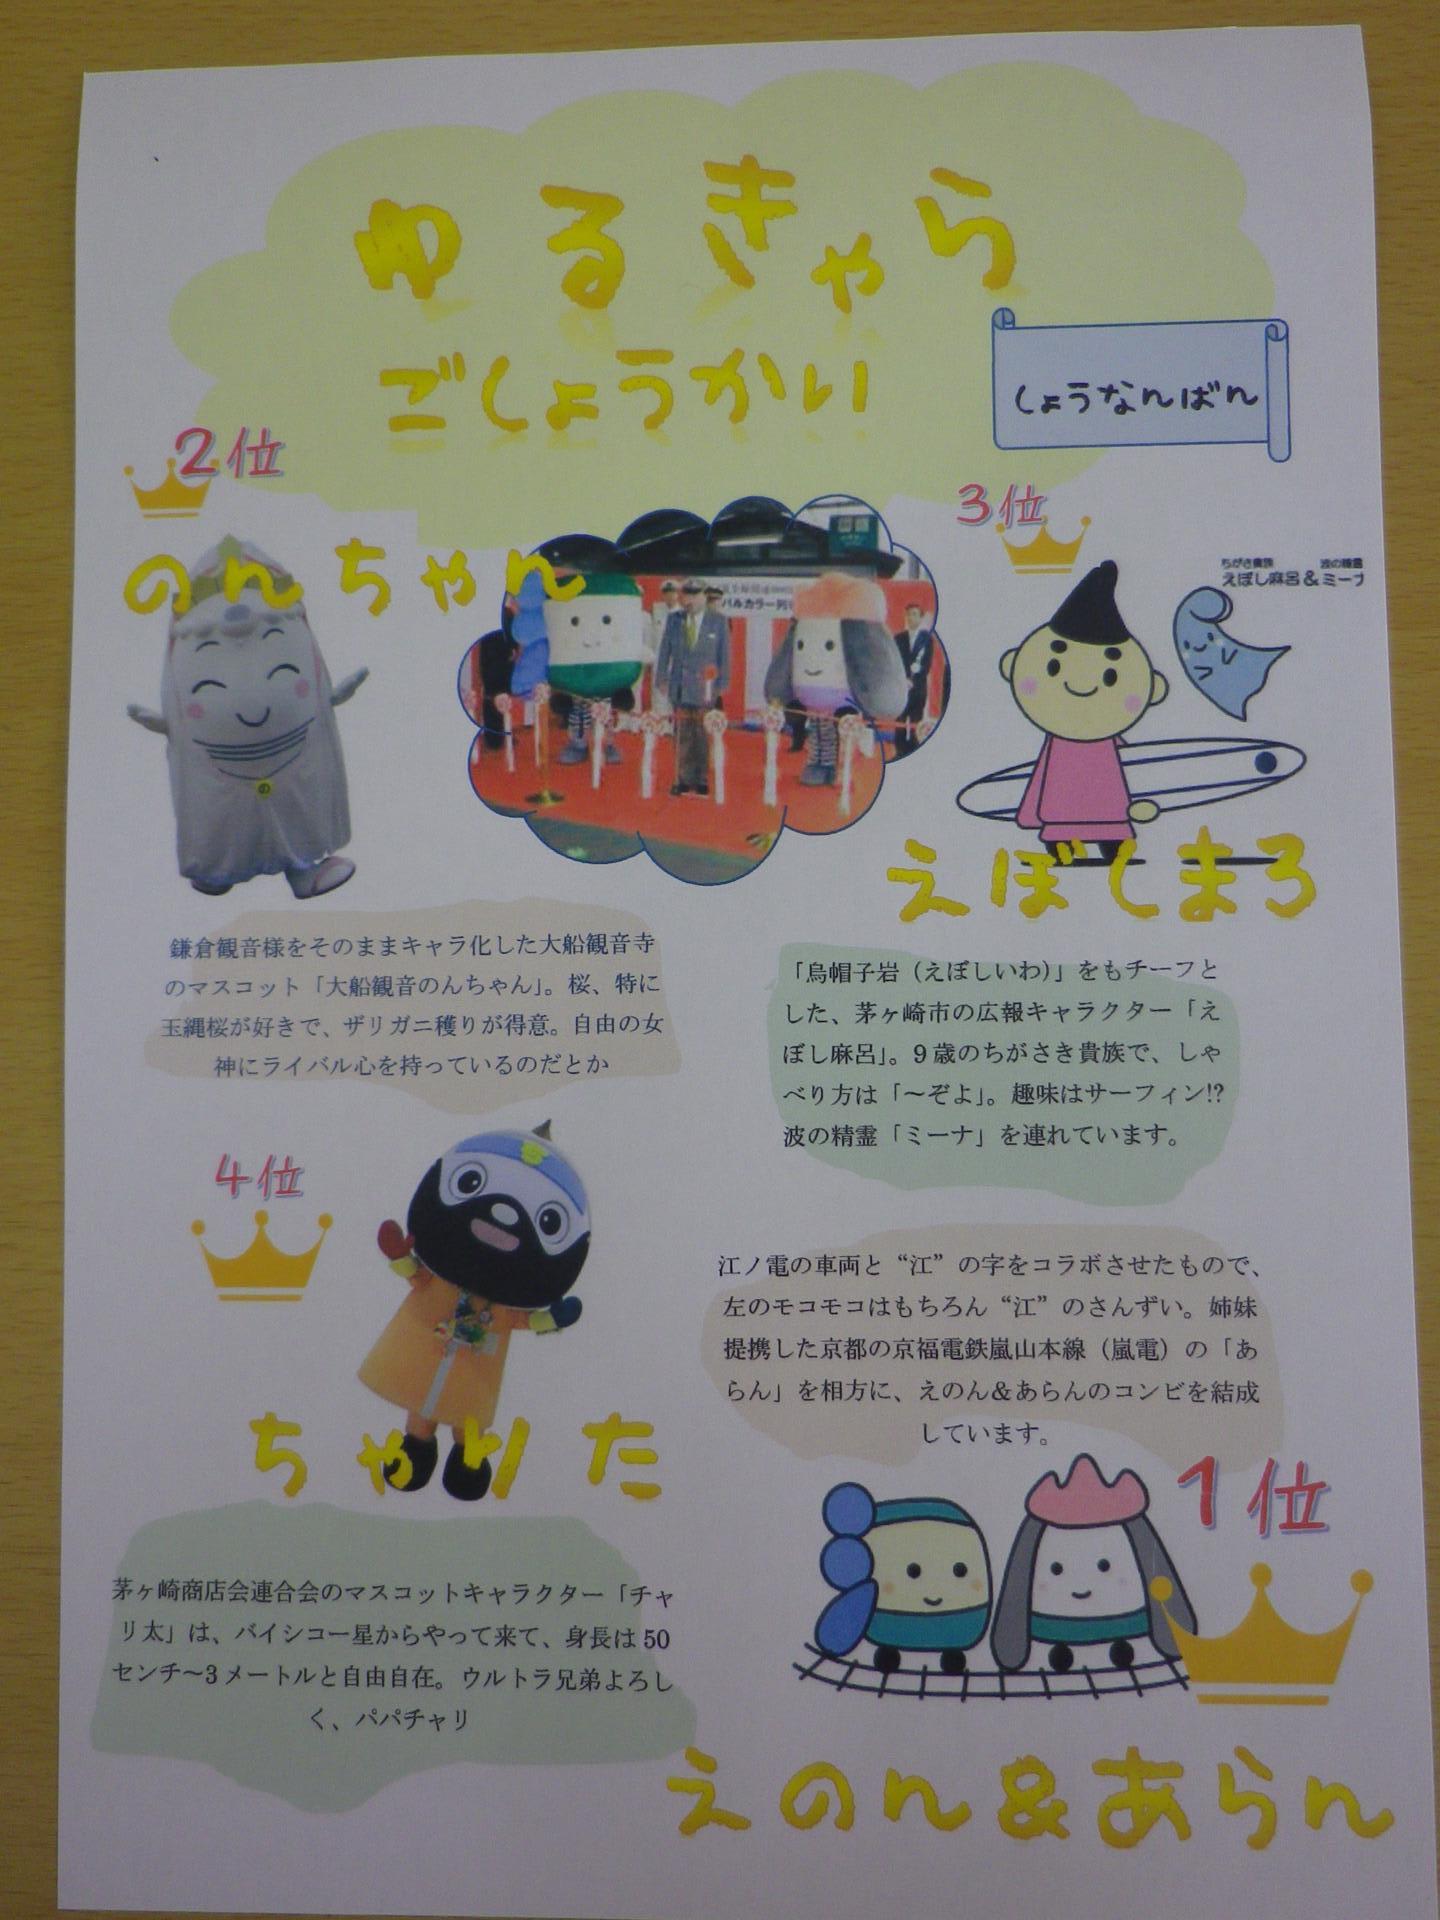 ゆるきゃら
ごしょうかい
しょうなんばん
2位
のんちゃん
バルカラー列
3位
ちがさき貴族 波の精霊
えぼし麻呂&ミーナ
の
えぼしまろ
鎌倉観音様をそのままキャラ化した大船観音寺
のマスコット「大船観音のんちゃん」。桜、特に
玉縄桜が好きで、ザリガニ穫りが得意。自由の女
神にライバル心を持っているのだとか
「烏帽子岩（えぼしいわ）」をもチーフと
した、茅ヶ崎市の広報キャラクター「え
ぼし麻呂」。9歳のちがさき貴族で、しゃ
べり方は「～ぞよ」。趣味はサーフィン!?
波の精霊「ミーナ」を連れています。
4位
ちゃりた
茅ヶ崎商店会連合会のマスコットキャラクター「チャ
リ太」は、バイシコー星からやって来て、身長は50
センチ～3メートルと自由自在。ウルトラ兄弟よろし
く、パパチャリ
江ノ電の車両と“江”の字をコラボさせたもので、
左のモコモコはもちろん“江”のさんずい。姉妹
提携した京都の京福電鉄嵐山本線（嵐電）の「あ
らん」を相方に、えのん&あらんのコンビを結成
しています。
1位
えのん&あらん